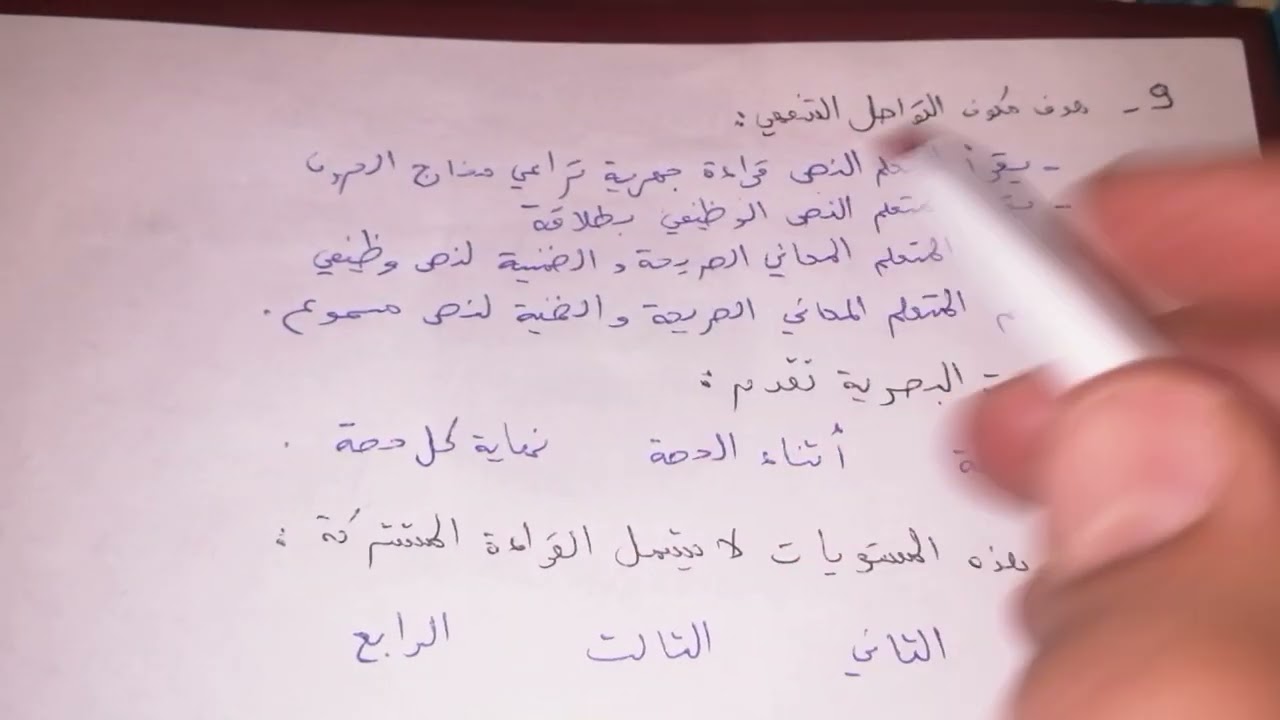 9 - هدف مكون التواصل الشفهي :
- يقرأ النص قراءة جهرية تراعي مخارج الحروف
- المتعلم النص الوظيفي بطلاقة
المتعلم المعاني الصريحة و الضمنية لنص وظيفي
المتعلم المعاني الصريحة والضمنية لنص مسموع .
البصرية تقدم :
أثناء الحصة نهاية كل حصة .
هذه المستويات لا يشمل القراءة المشتركة :
الثاني الثالث الرابع